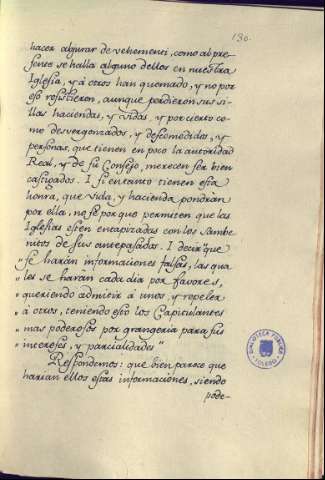 130.
hacer algurar de vehementi, como al pre-
sente se halla alguno dellos en nuestra
Iglesia, y á otros han quemado, y no por
eso resistieron, aunque perdieron sus si-
llas haciendas, y vidas, y por cierto co-
mo desvergonzados, y descomedidos, y
personas, que tienen en poco la autoridad
Real, y de su Consejo, merecen ser bien
castigados. I si en tanto tienen esta
honra, que vida, y hacienda pondran
por ella, no se por que permiten que las
Iglesias esten entapizadas con los Sambe-
nitos de sus antepasados. I decir "que
" se harán informaciones falsas, las qua-
" les se harán cada dia por favores,
" queriendo admitir á unos, y repeler
" á otros, teniendo eso los Capitulantes
" mas poderosos por grangeria para sus
" intereses, y parcialidades"
Respondemos: que bien parece que
harian ellos estas informaciones, siendo
pode-
BIBLIOTECA PUBLICA
TOLEDO